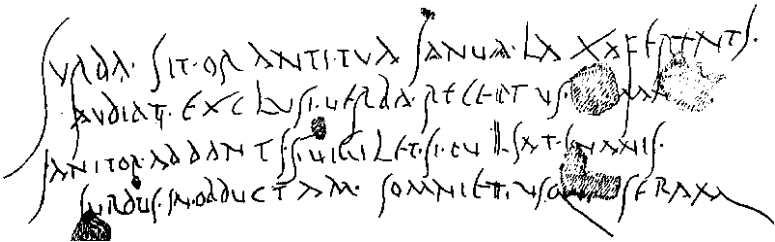 SVRDA·SIT·ORANTI·TVA IANVA·LAXA FERENTI·
AVDIAT·EXCLVSI·VERBA·RECEPTVS·
IANITOR·AD DANTIS·VIGILET·SI·PVLSAT·INANIS·
SVRDVS·IN·OBDVCTAM·SOMNIET· SERAM